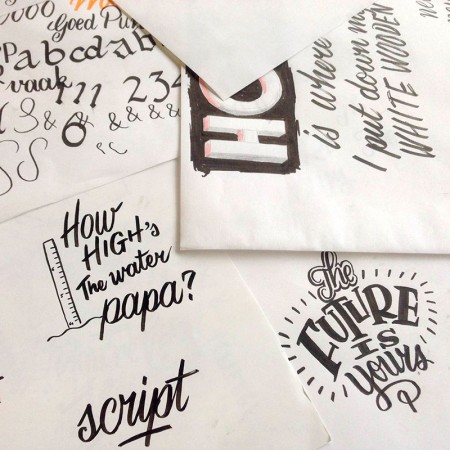 Goed
abcdab
vaak
234
& & & & &
6
HO
is where
I put down my
WHITE WOODEN
How
HIGH's
The water
papa?
script
The
FUTURE
IS
Yours